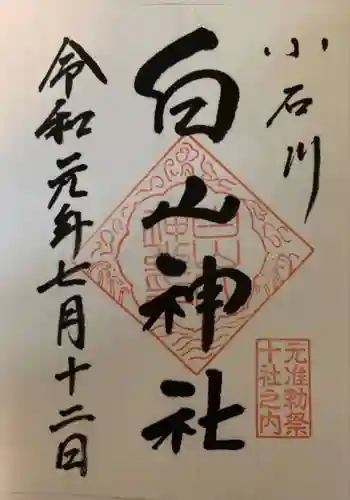 小石川
白山神社
令和元年七月十二日
元准勅祭
十社之内